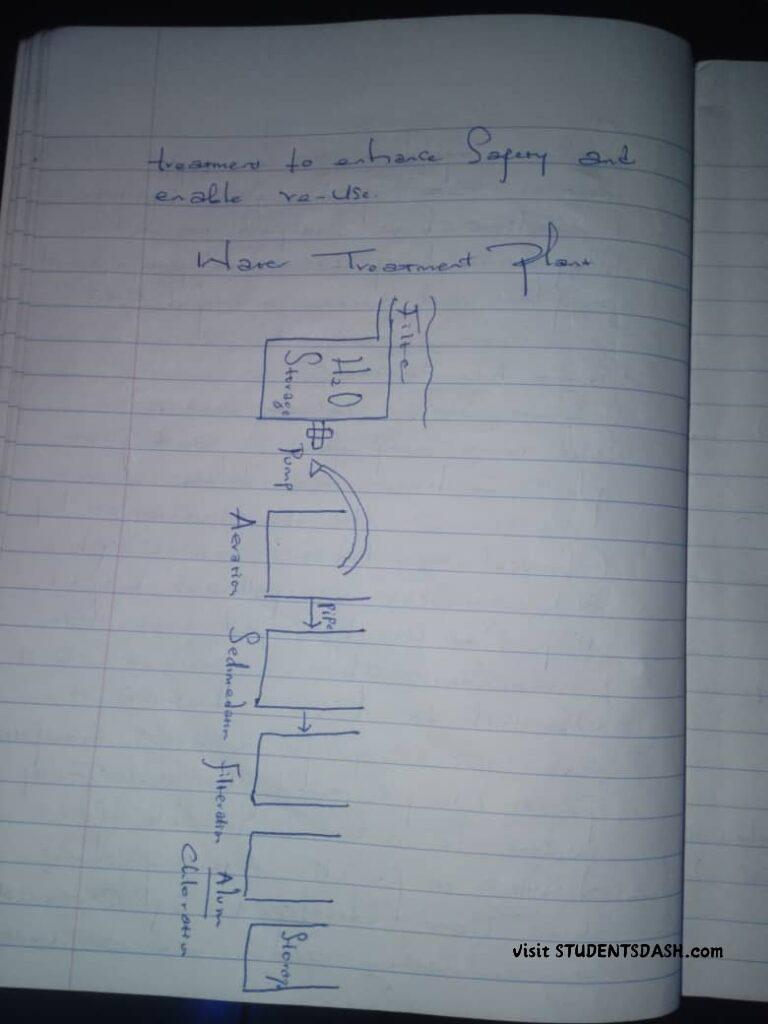 treatment to enhance Safety and
enable re-use.
Water Treatment Plant
Filte
H₂O
Storage
Pump
Aeration
Pipe
Sedimedation
Filteration
Alum
Chloration
Storage
Visit STUDENTSDASH.com